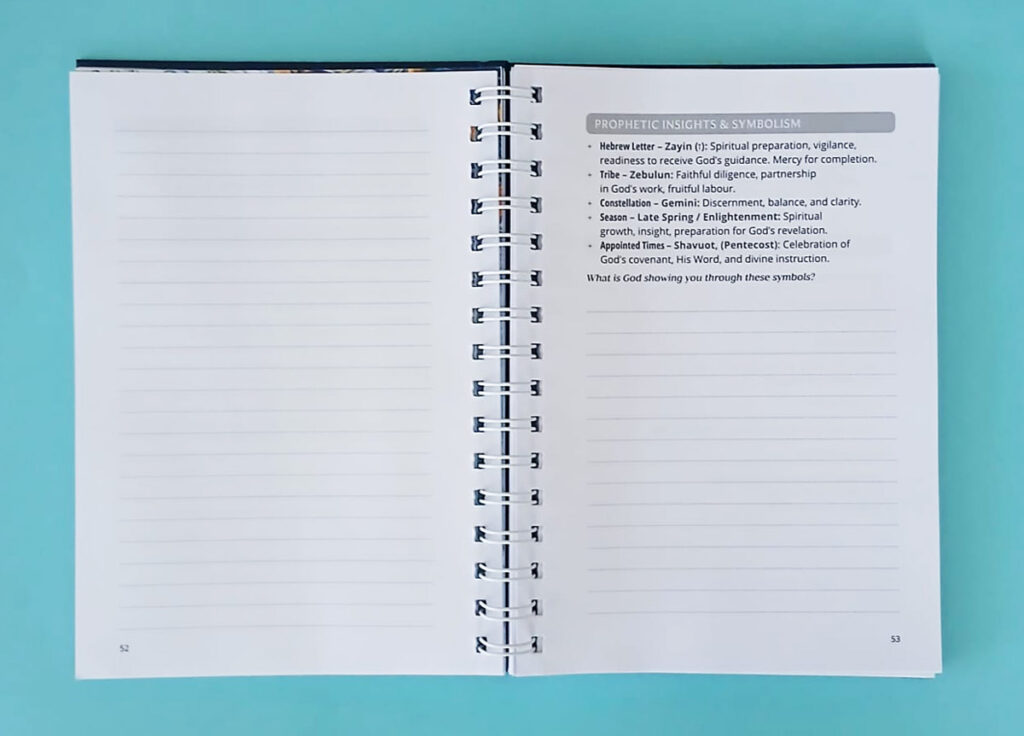 PROPHETIC INSIGHTS & SYMBOLISM
• Hebrew Letter – Zayin (ז): Spiritual preparation, vigilance,
readiness to receive God's guidance. Mercy for completion.
• Tribe – Zebulun: Faithful diligence, partnership
in God's work, fruitful labour.
• Constellation – Gemini: Discernment, balance, and clarity.
• Season – Late Spring / Enlightenment: Spiritual
growth, insight, preparation for God's revelation.
• Appointed Times – Shavuot, (Pentecost): Celebration of
God's covenant, His Word, and divine instruction.
What is God showing you through these symbols?
52
53